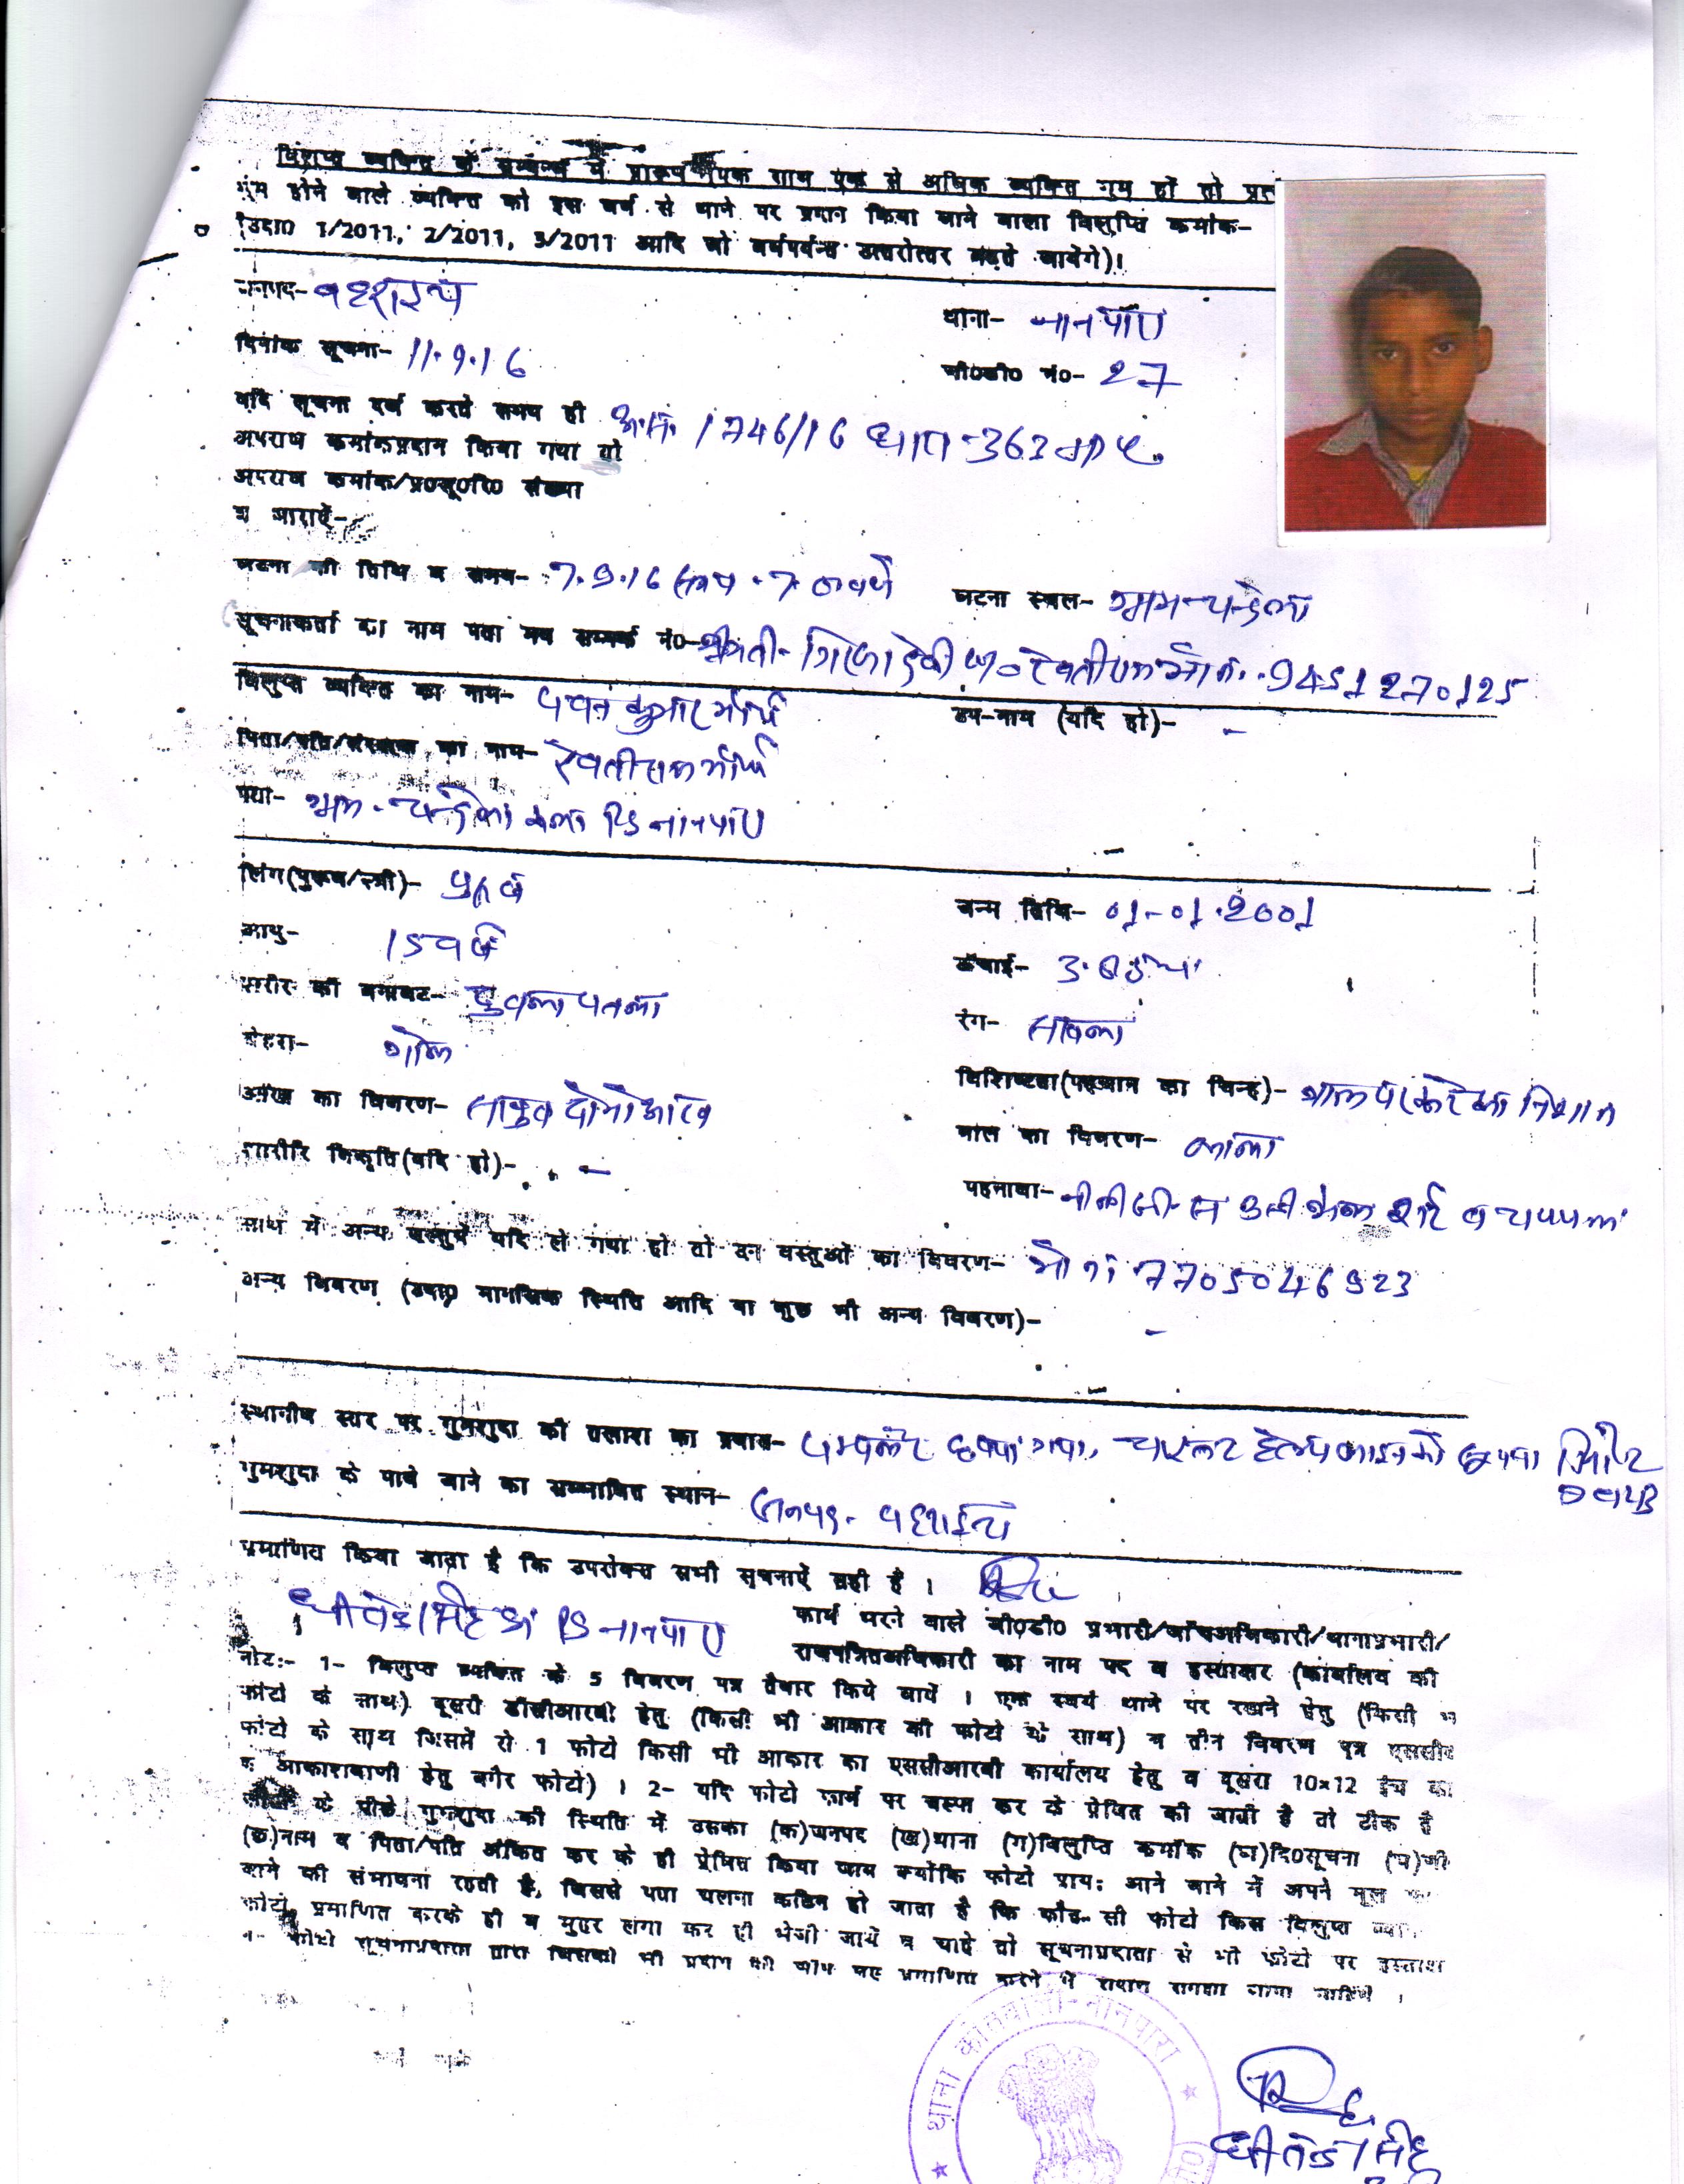 विलुप्त व्यक्ति के सम्बन्ध में प्रारूप एक साथ एक से अधिक व्यक्ति गुम हों तो प्रत
गुम होने वाले व्यक्ति को इस वर्ष से थाने पर प्रदान किया जाने वाला विलुप्ति कमांक-
(उदा0 1/2011, 2/2011, 3/2011 आदि जो वर्षपर्यन्त उत्तरोत्तर बढ़ते जायेंगे)।
जनपद- बहराइच थाना- नानपारा
दिनांक सूचना- 11.9.16 जी0डी0 नं0- 27
यदि सूचना दर्ज करते समय ही
अपराध कमांकप्रदान किया गया हो अ.सं. 1746/16 धारा-363
अपराध कमांक/प्र0सू0रि0 संख्या
व धाराऐं-
घटना की तिथि व समय- 7.9.16 समय 7.00 बजे घटना स्थल- ग्राम चन्देला
सूचनाकर्ता का नाम पता मय सम्पर्क नं0- श्रीमती देवी 9451270125
विलुप्त व्यक्ति का नाम- पवन कुमार मौर्य उप-नाम (यदि हो)- -
पिता/पति/संरक्षक का नाम- रेवतीराम मौर्य
पता- ग्राम चन्देला कला PS नानपारा
लिंग(पुरूष/स्त्री)- पुरुष जन्म तिथि- 01-01.2001
आयु- 15 वर्ष ऊंचाई-
शरीर की बनावट- दुबला पतला रंग- सांवला
चेहरा- गोल विशिष्टता(पहचान का चिन्ह)- का निशान
आंख का विवरण- साबुत दोनो आंख बाल का विवरण- काला
शारीरि विकृति(यदि हो)- - पहनावा- नीली जीन्स शर्ट व चप्पल
साथ में अन्य वस्तुयें यदि ले गया हो तो उन वस्तुओं का विवरण- मो नं 7705046923
अन्य विवरण (उदा0 मानसिक स्थिति आदि या कुछ भी अन्य विवरण)- -
स्थानीय स्तर पर गुमशुदा की तलाश का प्रयास- पम्पलेट छपवाया गया, चाइल्ड हेल्प लाइन को DCRB
गुमशुदा के पाये जाने का सम्भावित स्थान- जनपद- बहराइच
प्रमाणित किया जाता है कि उपरोक्त सभी सूचनाऐं सही है।
PS नानपारा फार्म भरने वाले जी0डी0 प्रभारी/जॉंचअधिकारी/थानाप्रभारी/
राजपत्रितअधिकारी का नाम पद व हस्ताक्षर (कार्यालय की
नोटः- 1- विलुप्त व्यक्ति के 5 विवरण पत्र तैयार किये जायें । एक स्वयं थाने पर रखने हेतु (किसी भ
फोटो के साथ) दूसरी डीसीआरबी हेतु (किसी भी आकार की फोटो के साथ) व तीन विवरण पत्र एससीर
फोटो के साथ जिसमें से 1 फोटो किसी भी आकार का एससीआरबी कार्यालय हेतु व दूसरा 10×12 इंच का
व आकाशवाणी हेतु बगैर फोटो) । 2- यदि फोटो फार्म पर चस्पा कर के प्रेषित की जाती है तो ठीक है
फोटो के पीछे गुमशुदा की स्थिति में उसका (क)जनपद (ख)थाना (ग)विलुप्ति कमॉंक (घ)दि0सूचना (च)जी
(छ)नाम व पिता/पति अंकित कर के ही प्रेषित किया जाय क्योंकि फोटो प्रायः आने जाने में अपने मूल
जाने की संभावना रहती है, जिससे पता चलना कठिन हो जाता है कि कौन-सी फोटो किस विलुप्त
फोटो प्रमाणित करके ही व मुहर लगा कर ही भेजी जायें व चाहे तो सूचनाप्रदाता से भी फोटो पर हस्ताक्ष
फोटो सूचनाप्रदाता द्वारा जिसको भी प्रदान की जाय वह प्रमाणित करने में सक्षम समझा जाना चाहिये ।
थाना कोतवाली-नानपारा